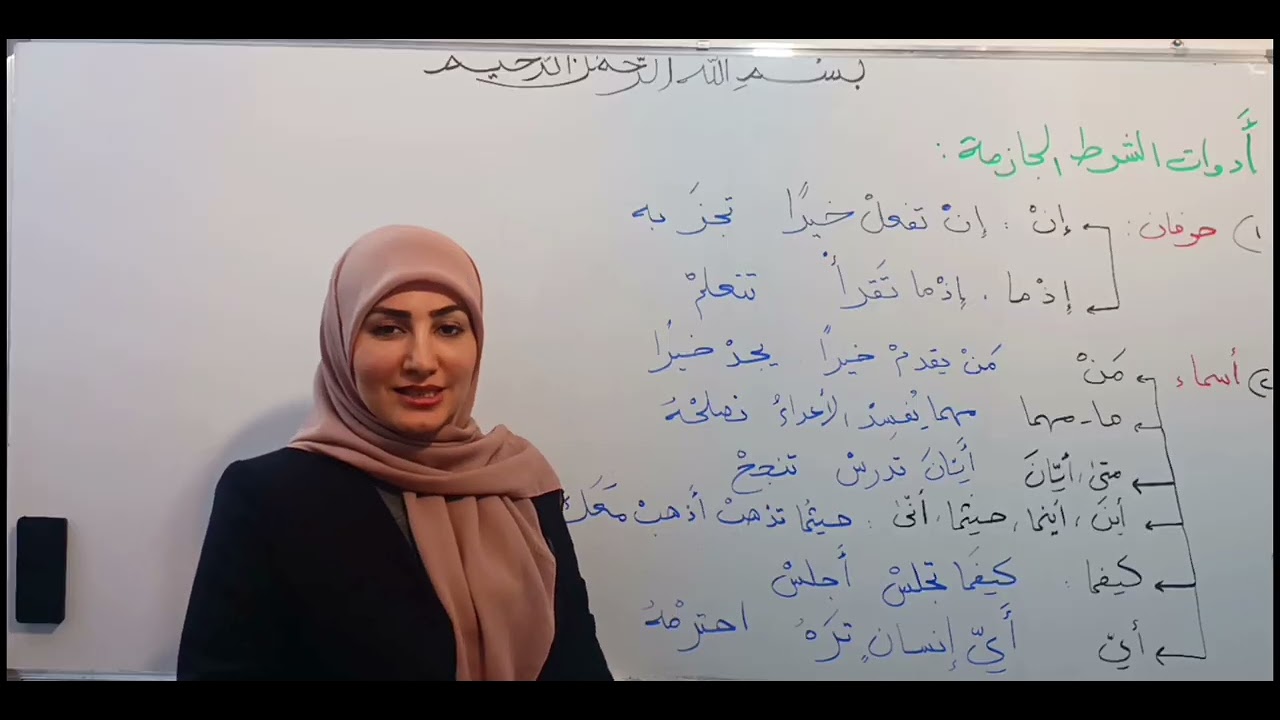 بسم الله الرحمن الرحيم
أَدوات الشرط الجازمة :
١) حرفان : إنْ : إنْ تفعلْ خيرًا تجزَ به
إذْما ، إذْما تَقرأْ تتعلمْ
٢) أسماء مَنْ مَنْ يقدمْ خيرًا يجدْ خيرًا
ما - مهما مهما يُفسِدْ الأعداءُ نصلحْهُ
متى، أيّانَ أَيّانَ تدرسْ تنجحْ
أينَ، أينما، حيثما، أنّى : حيثُما تذهبْ أَذهبْ مَعَكَ
كيفما : كيفَما تجلسْ أَجلسْ
أيّ أَيَّ إنسانٍ تَرَهُ احترمْهُ